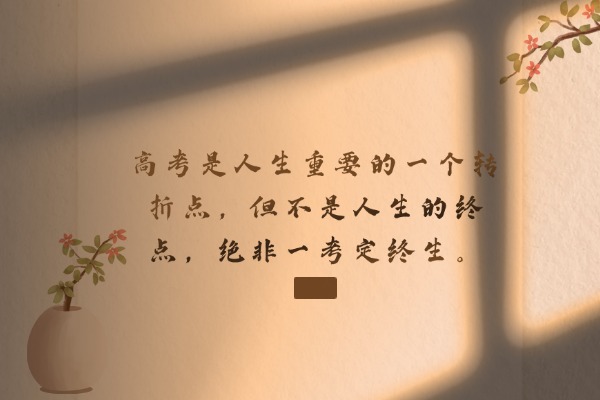 高考是人生重要的一个转
折点，但不是人生的终
点，绝非一考定终生。